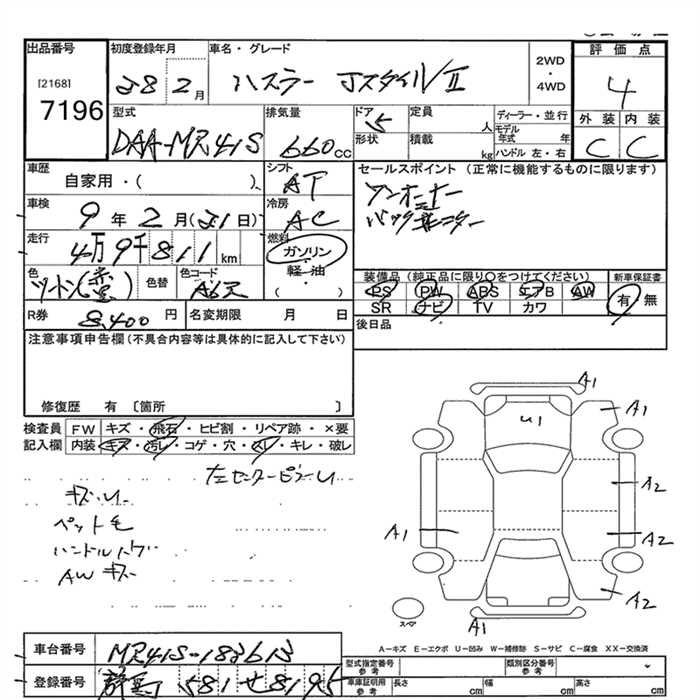 出品番号
[2168]
7196
初度登録年月
28 2月
車名・グレード
ハスラー Jスタイル/Ⅱ
2WD
・
4WD
評価点
4
外装 内装
C C
型式
DAA-MR41S
排気量
660cc
ドア 5
形状
定員 人
積載 kg
ディーラー・並行
モデル年式 年
ハンドル 左・右
車歴
自家用・( )
シフト
AT
セールスポイント (正常に機能するものに限ります)
ワンオーナー
バックモニター
車検
9年2月(21日)
冷房
AC
走行
4万9千811km
燃料
ガソリン
軽・油
( )
色
色替
色コード
装備品(純正品に限り○をつけてください)
PS PW ABS エアB AW
SR ナビ TV カワ
新車保証書
有 無
R券
8,400円
名変期限 月 日
後日品
注意事項申告欄(不具合内容等は具体的に記入して下さい)
修復歴 有 〔箇所 〕
検査員 FW キズ・飛石・ヒビ割・リペア跡・×要
記入欄 内装 キズ・汚レ・コゲ・穴・スレ・キレ・破レ
左センターピラーU
キズ・U
ペット毛
ハンドルスレ
AW キズ
A1
U1
A1
A2
A1
A2
A2
A1
スペア
A-キズ E-エクボ U-凹み W-補修跡 S-サビ C-腐食 XX-交換済
車台番号
MR41S-183613
登録番号
群馬 581 せ 8195
型式指定番号
参考
類別区分番号
参考
車庫証明用
参考
長さ cm
幅 cm
高さ cm